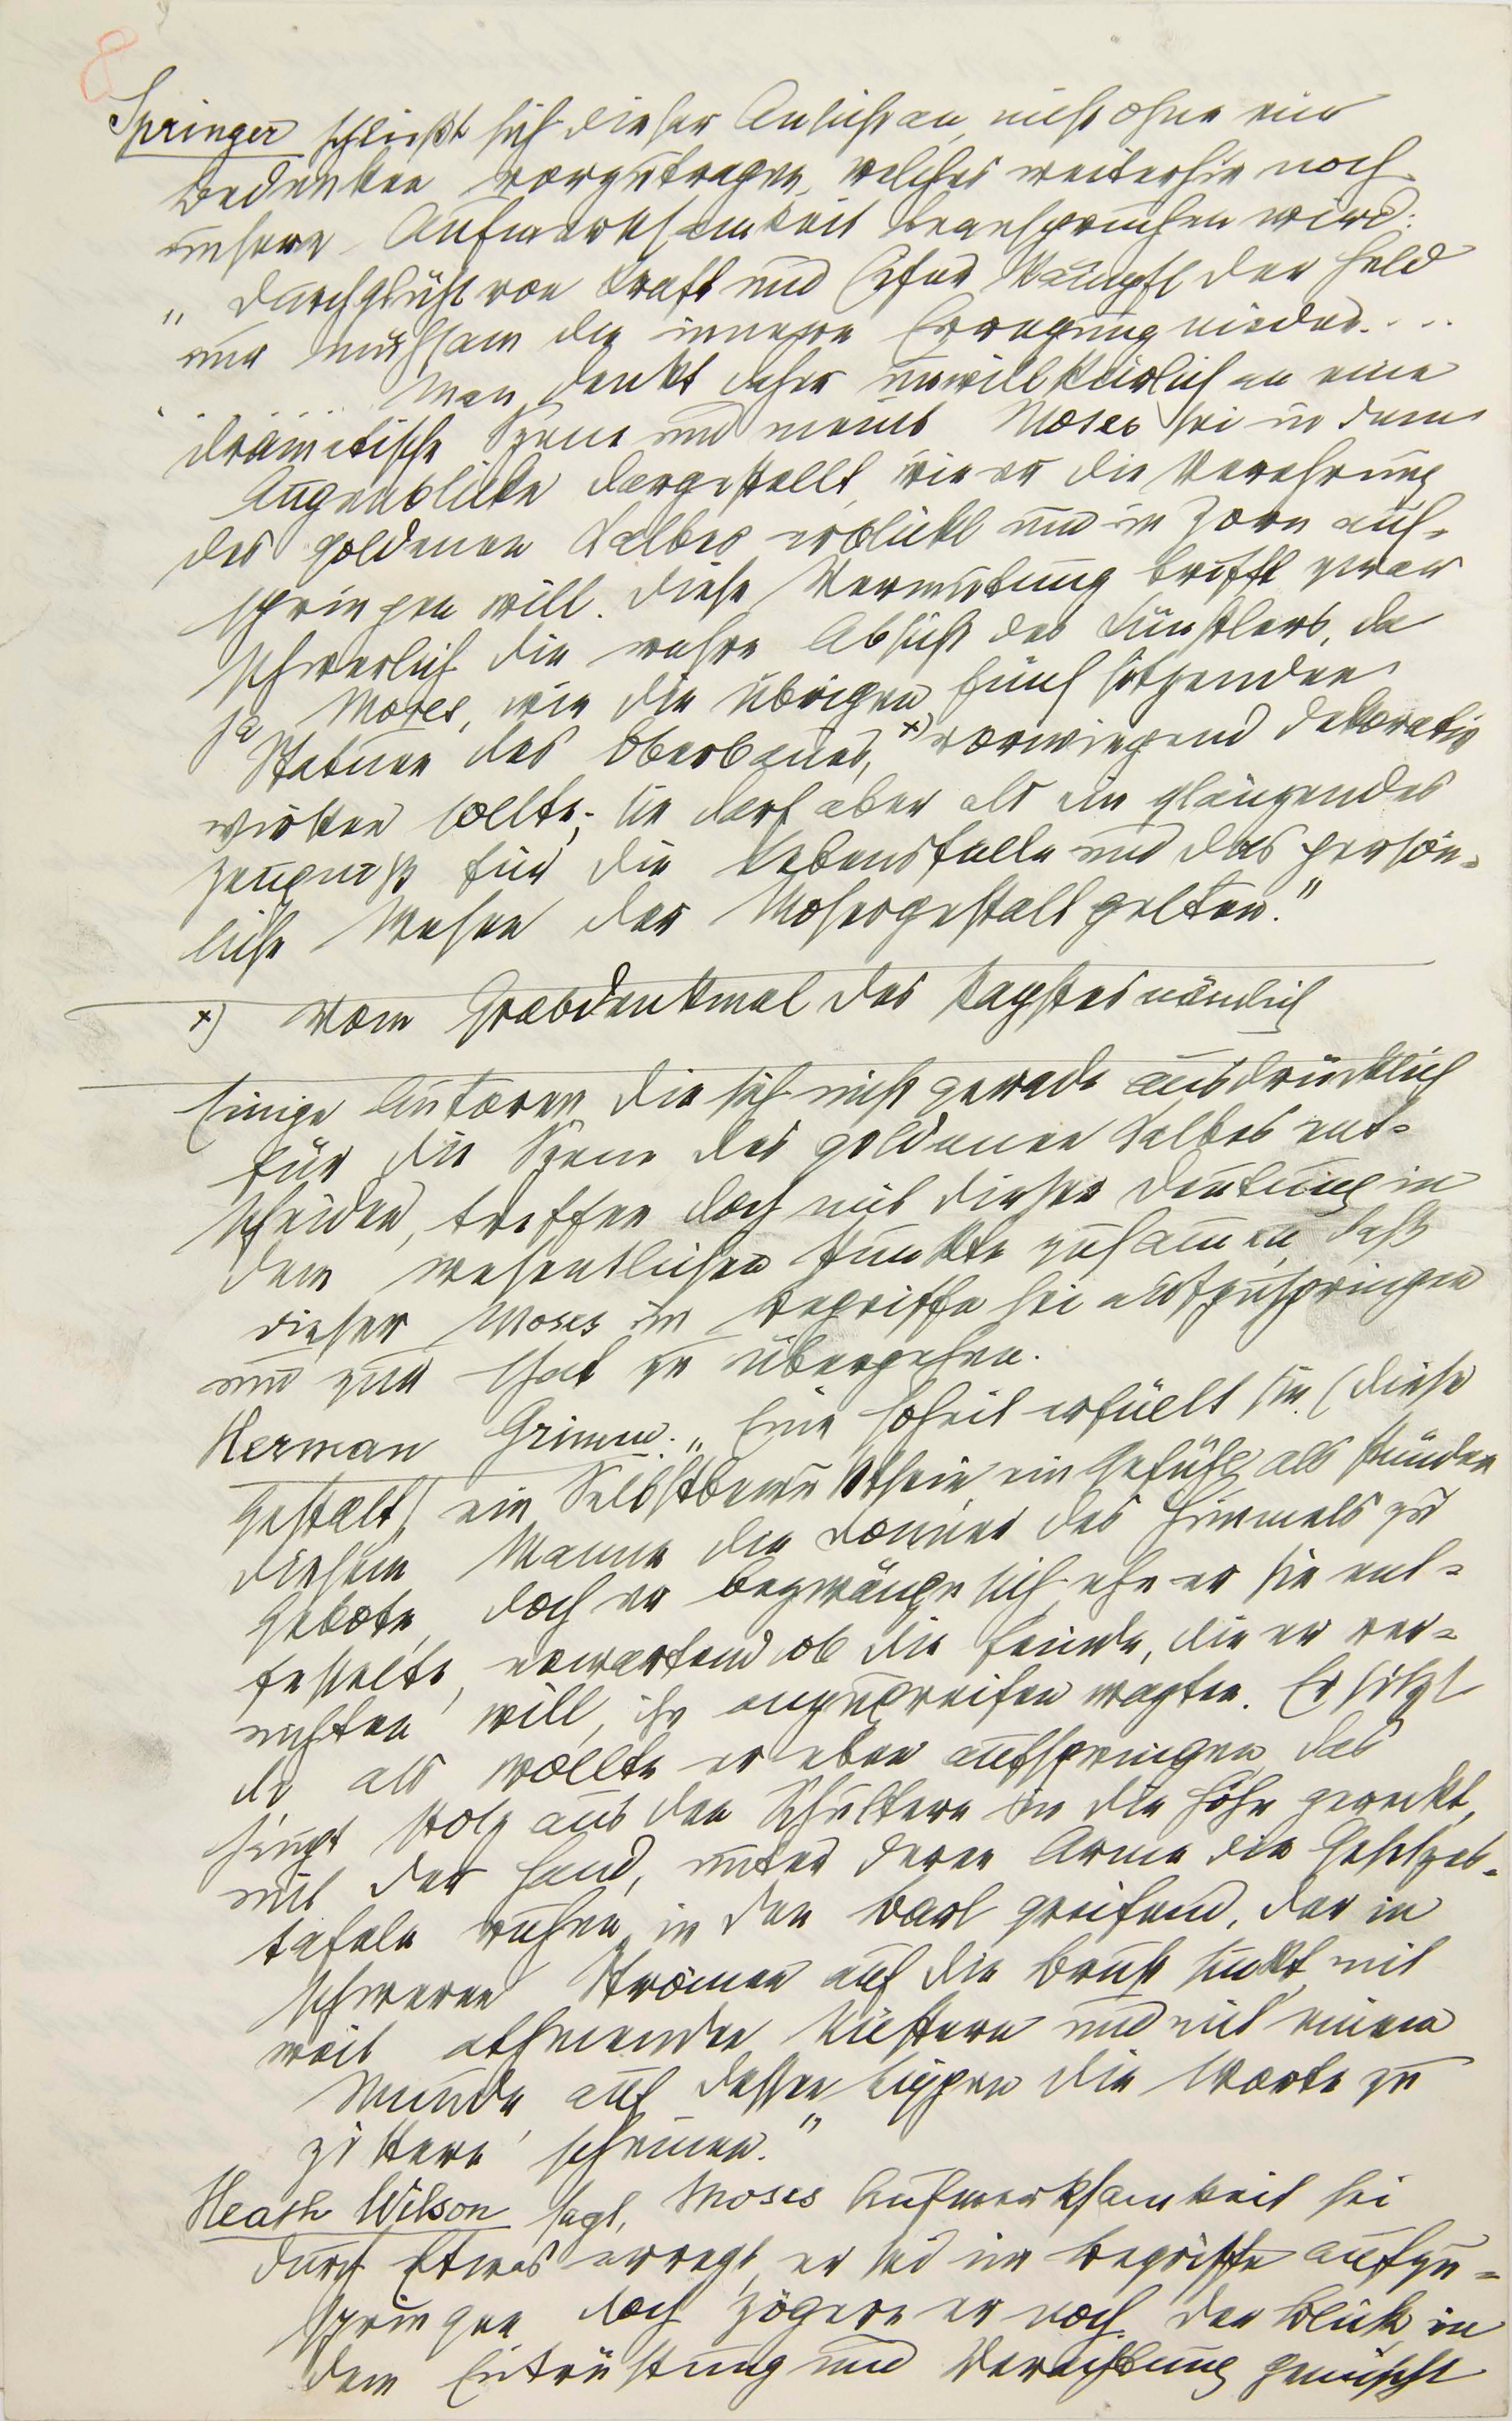 8
Springer schließt sich dieser Ansicht an, nicht ohne ein
Bedenken vorzutragen, welches weiterhin noch
unsere Aufmerksamkeit beanspruchen wird:
„Durchglüht von Kraft und Eifer kämpft der Held
nur mühsam die innere Erregung nieder....
..... Man denkt daher unwillkürlich an eine
dramatische Szene und meint Moses sei in dem
Augenblicke dargestellt, wie er die Verehrung
des goldenen Kalbes erblickt und im Zorn auf-
springen will. Diese Vermutung trifft zwar
schwerlich die wahre Absicht des Künstlers, da
ja Moses, wie die übrigen fünf sitzenden
Statuen des Oberbaues, x) vorwiegend dekorativ
wirken sollte; sie darf aber als ein glänzendes
Zeugniß für die Lebensfülle und das persön-
liche Wesen der Mosesgestalt gelten."
x) Vom Grabdenkmal des Papstes nämlich
Einige Autoren, die sich nicht gerade ausdrücklich
für die Szene des goldenen Kalbes ent-
scheiden, treffen doch mit dieser Deutung in
dem wesentlichen Punkte zusammen, daß
dieser Moses im Begriffe sei aufzuspringen
und zur That zu übergehen.
Herman Grimm: „Eine Hoheit erfüllt sie (diese
Gestalt) ein Selbstbewußtsein, ein Gefühl als stünden
diesem Manne die Donner des Himmels zu
Gebote, doch er bezwänge sich ehe er sie ent-
fesselte, erwartend ob die Feinde, die er ver-
nichten will, ihn anzugreifen wagten. Er sitzt
da als wollte er eben aufspringen, das
Haupt stolz aus den Schultern in die Höhe gereckt,
mit der Hand, unter deren Arme die Gesetzes-
tafeln ruhen, in den Bart greifend, der in
schweren Strömen auf die Brust sinkt, mit
weit athmenden Nüstern und mit einem
Munde auf dessen Lippen die Worte zu
zittern scheinen."
Heath Wilson sagt, Moses Aufmerksamkeit sei
durch Etwas erregt, er sei im Begriffe aufzu-
springen, doch zögere er noch. Der Blick, in
dem Entrüstung und Verachtung gemischt